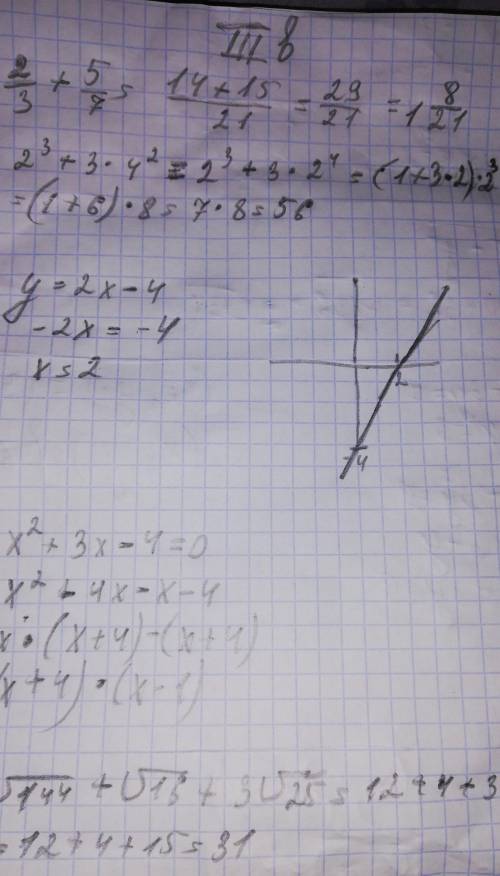 III в
2/3 + 5/7 = (14+15)/21 = 29/21 = 1 8/21
2³ + 3·4² = 2³ + 3·2⁴ = (1+3·2)·2³
=(1+6)·8=7·8=56
y=2x-4
-2x=-4
x=2
2
-4
x²+3x-4=0
x²+4x-x-4
x·(x+4)-(x+4)
(x+4)·(x-1)
√144 + √13 + 3√25 = 12+4+3
=12+4+15=31